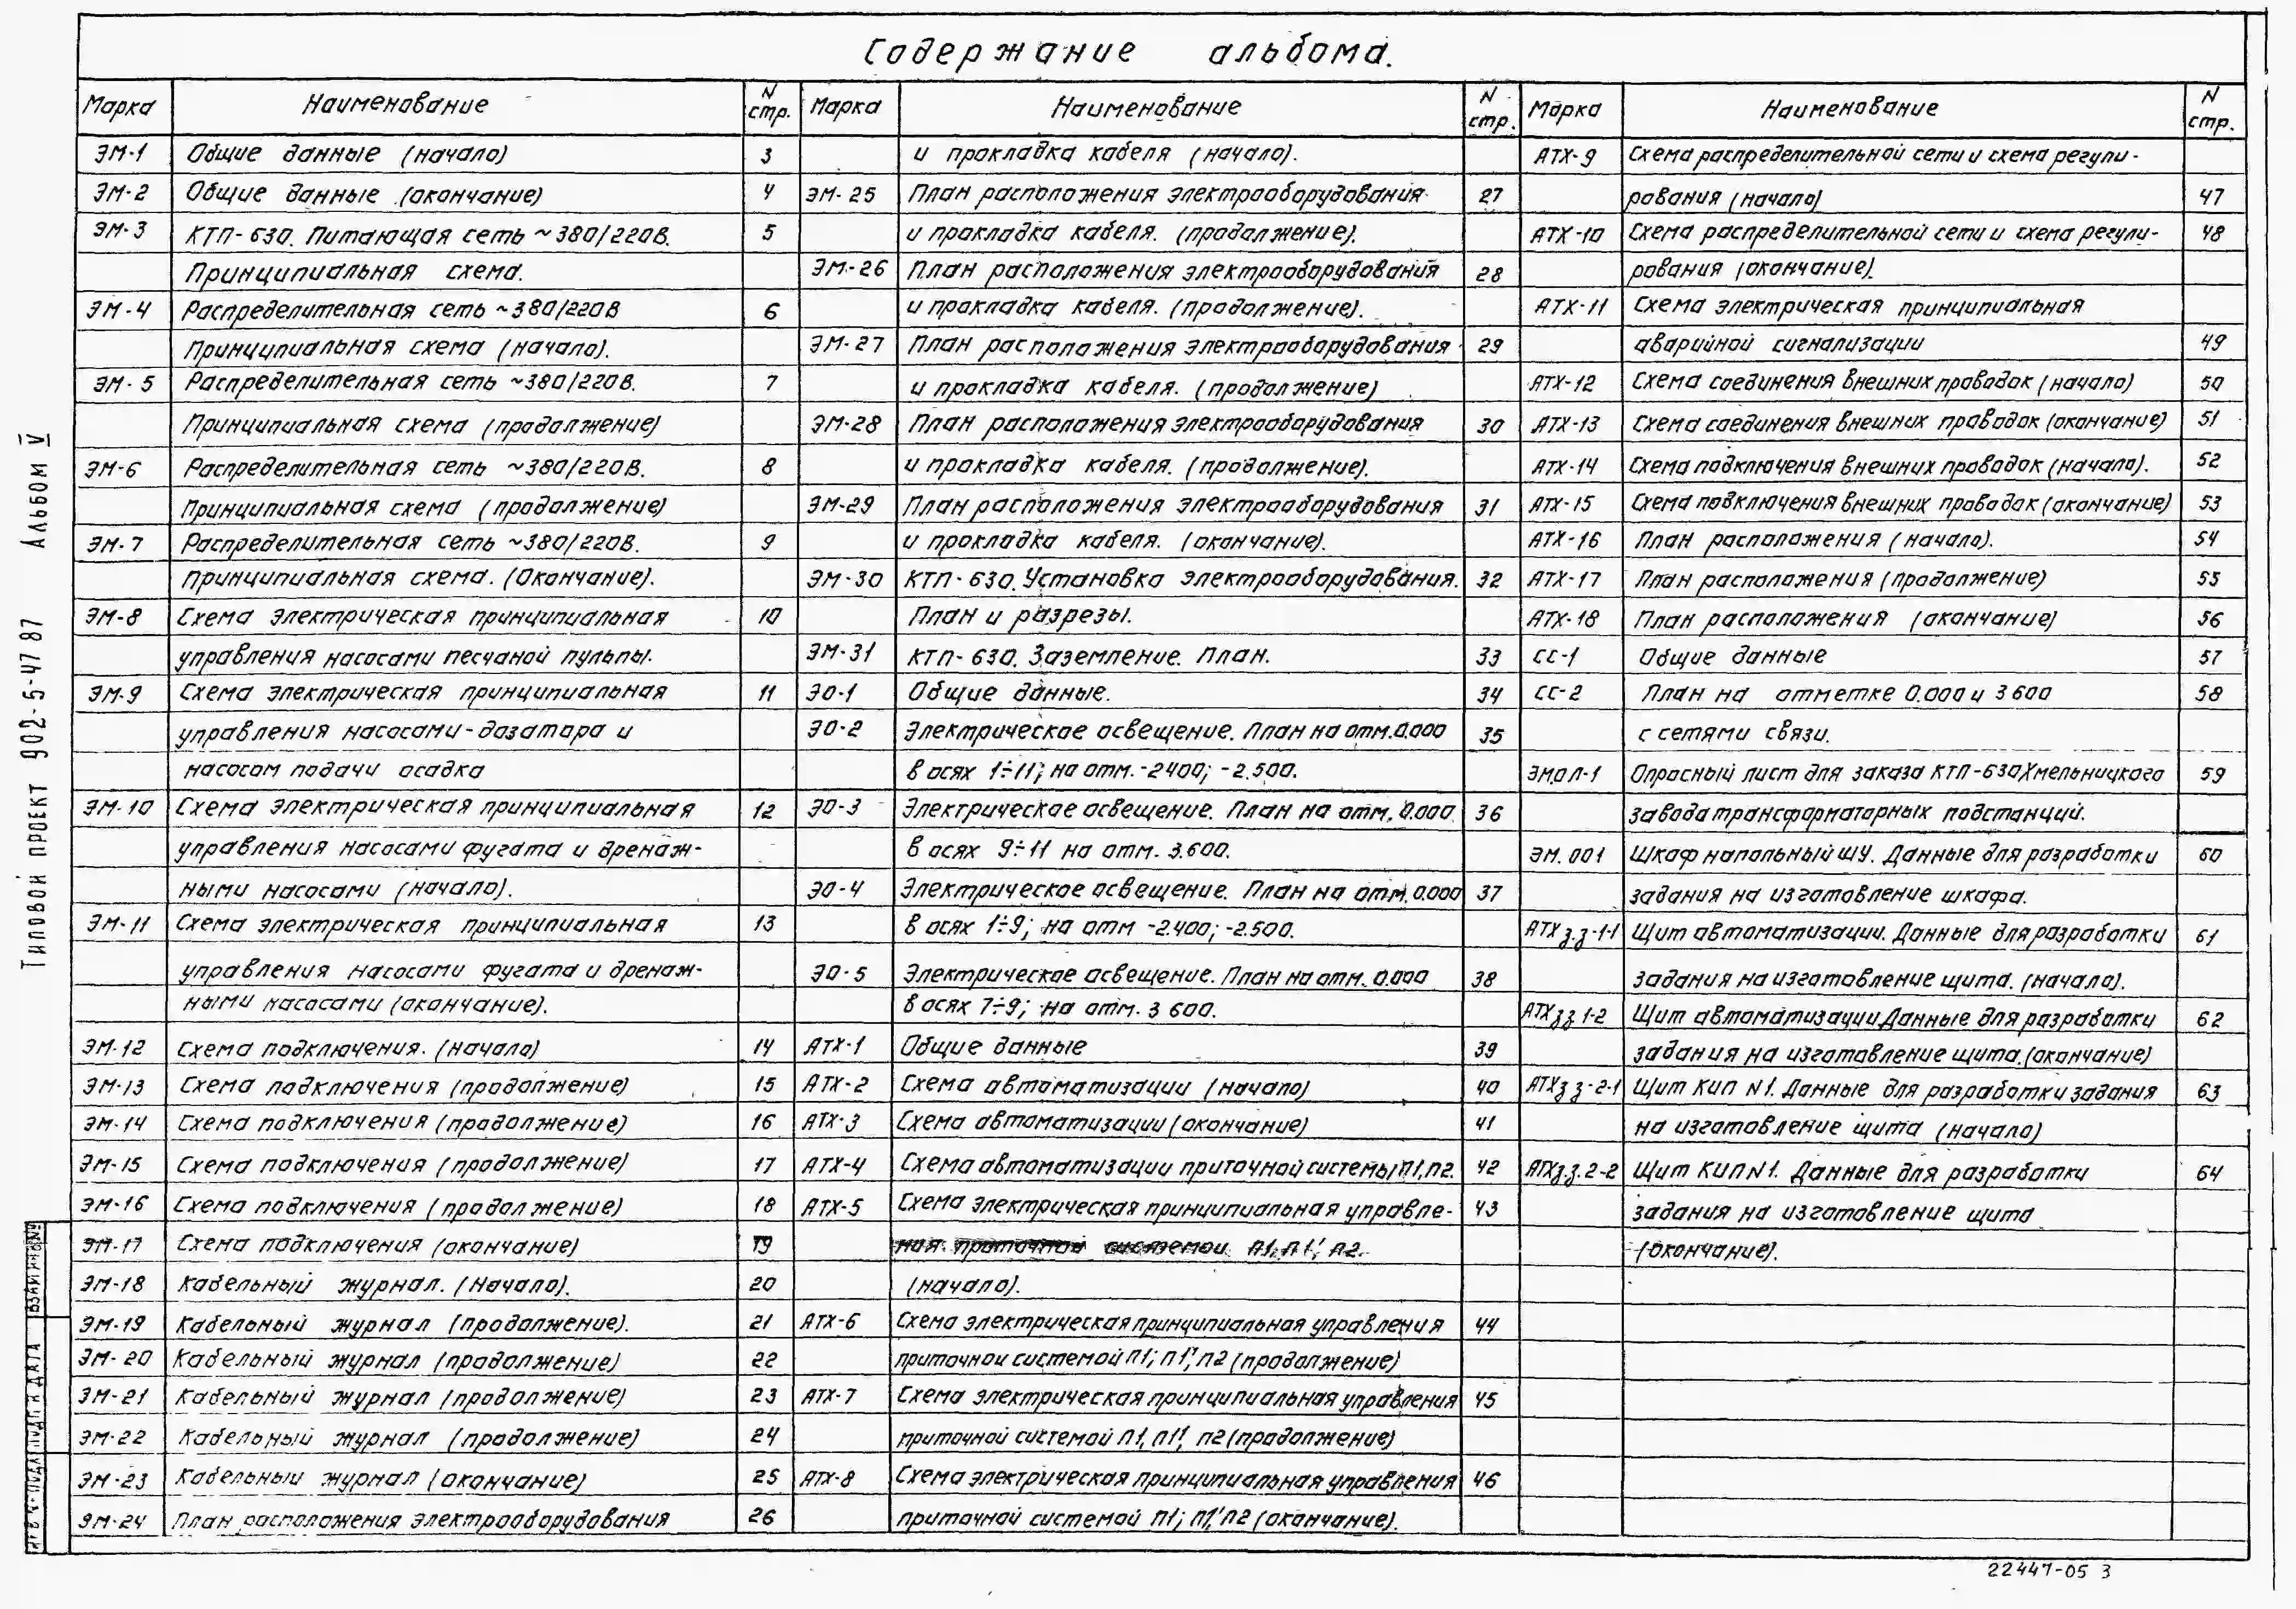 Содержание альбома.
Марка Наименование N стр.
ЭМ-1 Общие данные (начало) 3
ЭМ-2 Общие данные (окончание) 4
ЭМ-3 КТП-630. Питающая сеть ~380/220В. 5
Принципиальная схема.
ЭМ-4 Распределительная сеть ~380/220В 6
Принципиальная схема (начало).
ЭМ-5 Распределительная сеть ~380/220В. 7
Принципиальная схема (продолжение)
ЭМ-6 Распределительная сеть ~380/220В. 8
Принципиальная схема (продолжение)
ЭМ-7 Распределительная сеть ~380/220В. 9
Принципиальная схема. (Окончание).
ЭМ-8 Схема электрическая принципиальная 10
управления насосами песчаной пульпы.
ЭМ-9 Схема электрическая принципиальная 11
управления насосами-дозатора и
насосом подачи осадка
ЭМ-10 Схема электрическая принципиальная 12
управления насосами фугата и дренаж-
ными насосами (начало).
ЭМ-11 Схема электрическая принципиальная 13
управления насосами фугата и дренаж-
ными насосами (окончание).
ЭМ-12 Схема подключения. (начало) 14
ЭМ-13 Схема подключения (продолжение) 15
ЭМ-14 Схема подключения (продолжение) 16
ЭМ-15 Схема подключения (продолжение) 17
ЭМ-16 Схема подключения (продолжение) 18
ЭМ-17 Схема подключения (окончание) 19
ЭМ-18 Кабельный журнал. (Начало). 20
ЭМ-19 Кабельный журнал (продолжение). 21
ЭМ-20 Кабельный журнал (продолжение) 22
ЭМ-21 Кабельный журнал (продолжение) 23
ЭМ-22 Кабельный журнал (продолжение) 24
ЭМ-23 Кабельный журнал (окончание) 25
ЭМ-24 План расположения электрооборудования 26
Марка Наименование N стр.
и прокладка кабеля (начало).
ЭМ-25 План расположения электрооборудования 27
и прокладка кабеля. (продолжение).
ЭМ-26 План расположения электрооборудования 28
и прокладка кабеля. (продолжение).
ЭМ-27 План расположения электрооборудования 29
и прокладка кабеля. (продолжение)
ЭМ-28 План расположения электрооборудования 30
и прокладка кабеля. (продолжение).
ЭМ-29 План расположения электрооборудования 31
и прокладка кабеля. (окончание).
ЭМ-30 КТП-630. Установка электрооборудования. 32
План и разрезы.
ЭМ-31 КТП-630. Заземление. План. 33
ЭО-1 Общие данные. 34
ЭО-2 Электрическое освещение. План на отм. 0.000 35
в осях 1÷11; на отм. -2400; -2.500.
ЭО-3 Электрическое освещение. План на отм. 0.000 36
в осях 9÷11 на отм. 3.600.
ЭО-4 Электрическое освещение. План на отм. 0.000 37
в осях 1÷9; на отм -2.400; -2.500.
ЭО-5 Электрическое освещение. План на отм. 0.000 38
в осях 7÷9; на отм. 3 600.
АТХ-1 Общие данные 39
АТХ-2 Схема автоматизации (начало) 40
АТХ-3 Схема автоматизации (окончание) 41
АТХ-4 Схема автоматизации приточной системы П1, П2. 42
АТХ-5 Схема электрическая принципиальная управле- 43
ния приточной системой П1, П1', П2.
(начало).
АТХ-6 Схема электрическая принципиальная управления 44
приточной системой П1; П1', П2 (продолжение)
АТХ-7 Схема электрическая принципиальная управления 45
приточной системой П1, П1', П2 (продолжение)
АТХ-8 Схема электрическая принципиальная управления 46
приточной системой П1; П1', П2 (окончание).
Марка Наименование N стр.
АТХ-9 Схема распределительной сети и схема регули-
рования (начало) 47
АТХ-10 Схема распределительной сети и схема регули- 48
рования (окончание).
АТХ-11 Схема электрическая принципиальная
аварийной сигнализации 49
АТХ-12 Схема соединения внешних проводок (начало) 50
АТХ-13 Схема соединения внешних проводок (окончание) 51
АТХ-14 Схема подключения внешних проводок (начало). 52
АТХ-15 Схема подключения внешних проводок (окончание) 53
АТХ-16 План расположения (начало). 54
АТХ-17 План расположения (продолжение) 55
АТХ-18 План расположения (окончание) 56
СС-1 Общие данные 57
СС-2 План на отметке 0.000 и 3 600 58
с сетями связи.
ЭМ.ОЛ-1 Опросный лист для заказа КТП-630 Хмельницкого 59
завода трансформаторных подстанций.
ЭМ.001 Шкаф напольный ШУ. Данные для разработки 60
задания на изготовление шкафа.
АТХз.з-1-1 Щит автоматизации. Данные для разработки 61
задания на изготовление щита. (начало).
АТХзз 1-2 Щит автоматизации. Данные для разработки 62
задания на изготовление щита. (окончание)
АТХзз-2-1 Щит КИП N1. Данные для разработки задания 63
на изготовление щита (начало)
АТХз.з.2-2 Щит КИП N1. Данные для разработки 64
задания на изготовление щита
(окончание).
Типовой проект 902-5-47 87 Альбом V
Взам инв №
Подп и дата
Инв № подл
22447-05 3